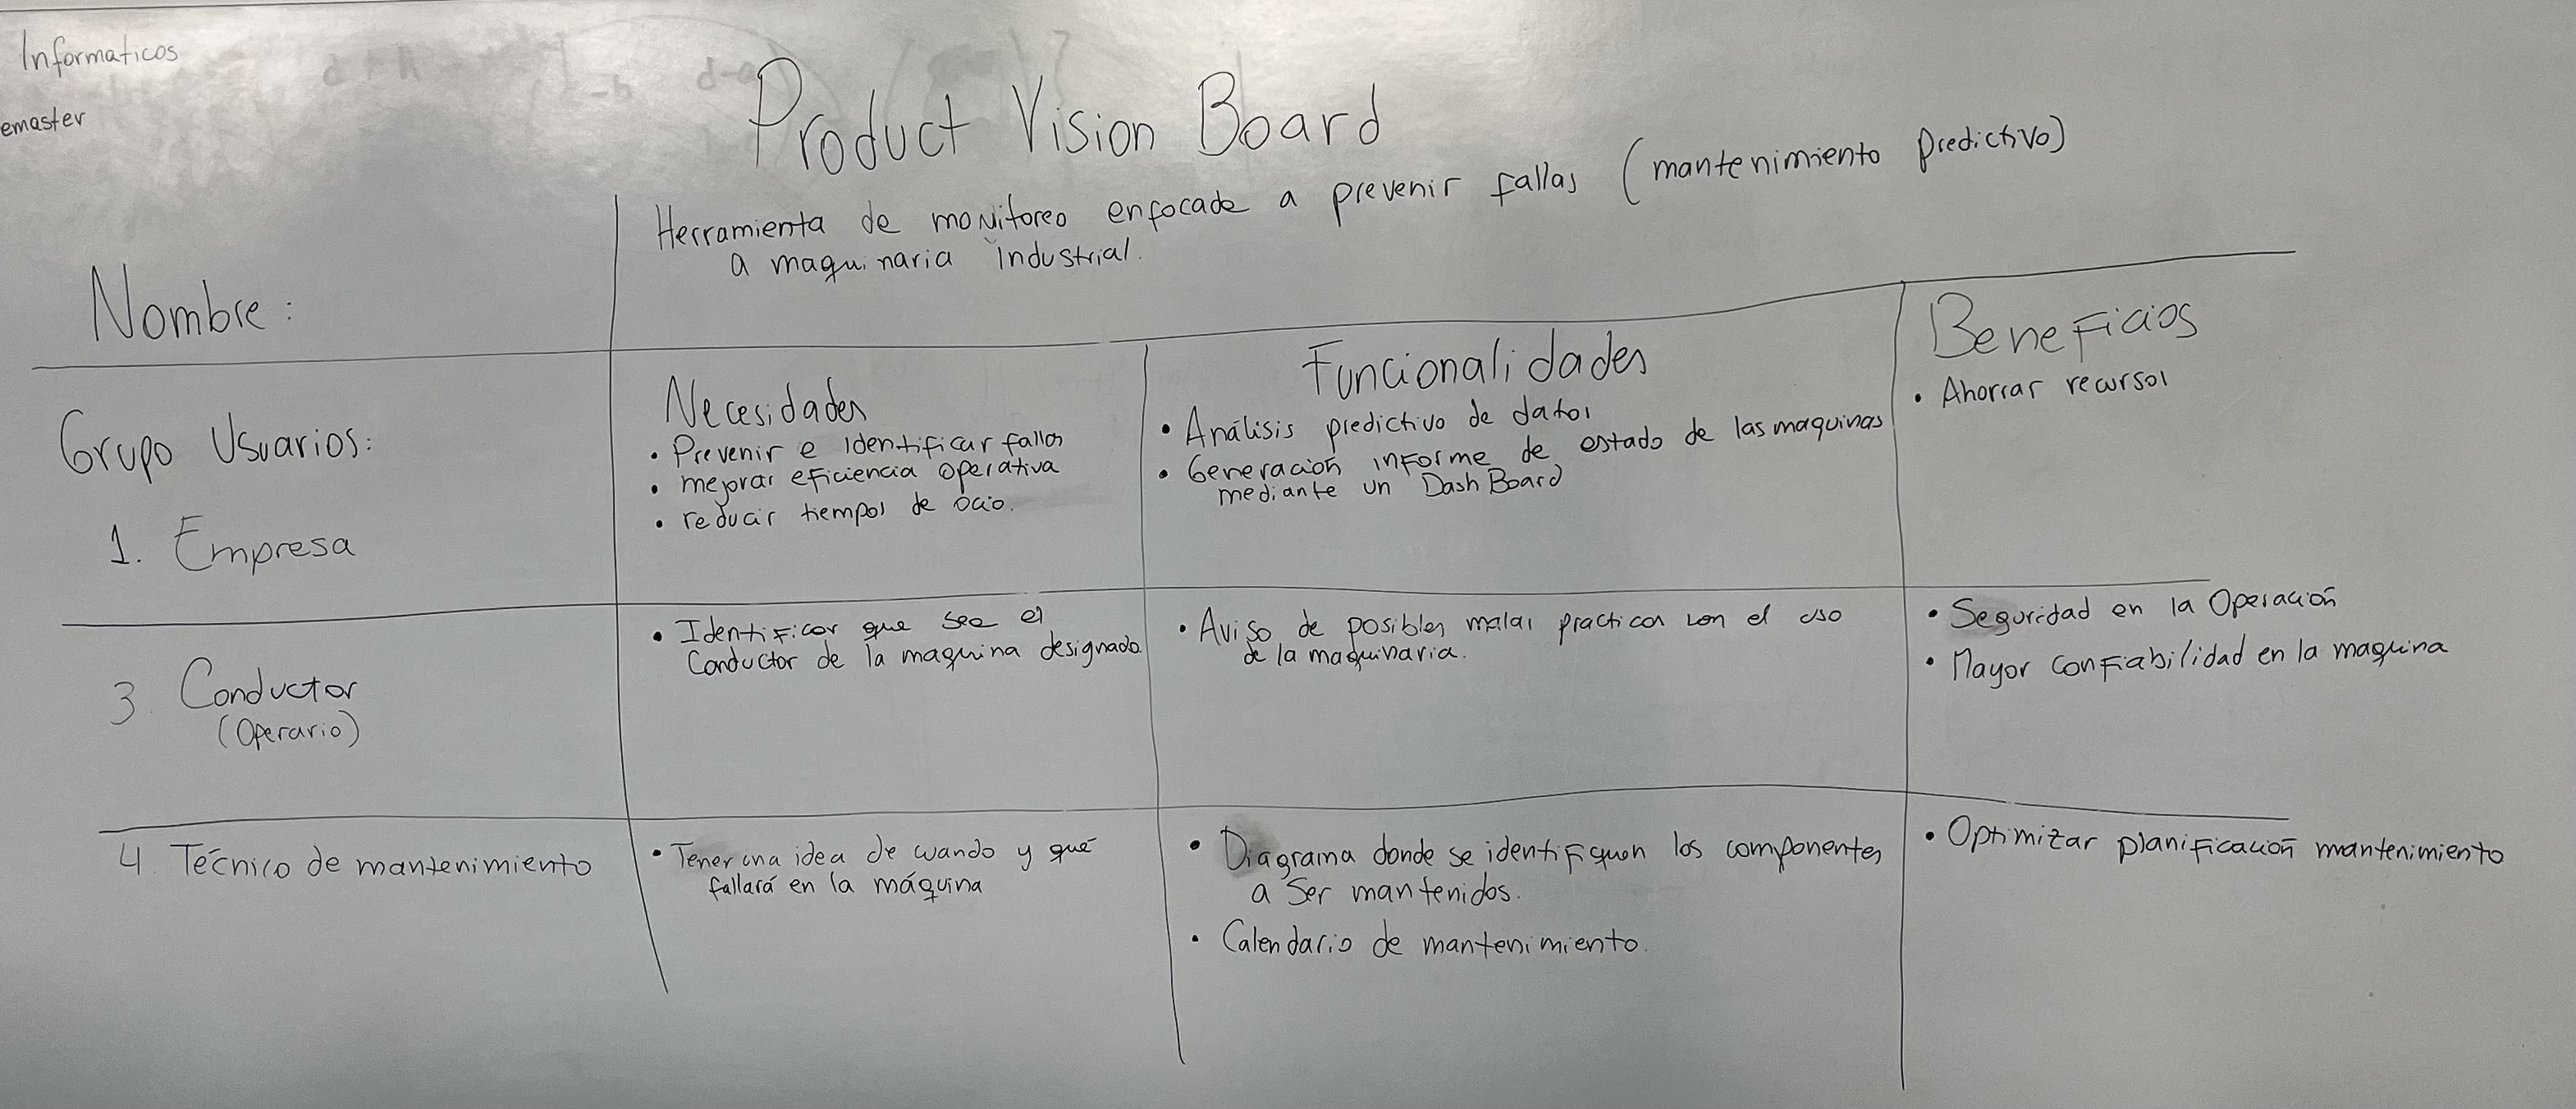 Informaticos
emaster
Product Vision Board
Herramienta de monitoreo enfocada a prevenir fallas (mantenimiento predictivo)
a maquinaria industrial.
Nombre:
Grupo Usuarios:
1. Empresa
Necesidades
• Prevenir e identificar fallas
• mejorar eficiencia operativa
• reducir tiempos de ocio.
Funcionalidades
• Análisis predictivo de datos
• Generación informe de estado de las maquinas
mediante un DashBoard
Beneficios
• Ahorrar recursos
3 Conductor
(Operario)
• Identificar que sea el
Conductor de la maquina designado.
• Aviso de posibles malas practicas con el uso
de la maquinaria.
• Seguridad en la Operación
• Mayor confiabilidad en la maquina
4 Técnico de mantenimiento
• Tener una idea de cuando y qué
fallará en la máquina
• Diagrama donde se identifiquen los componentes
a ser mantenidos.
• Calendario de mantenimiento.
• Optimizar planificación mantenimiento